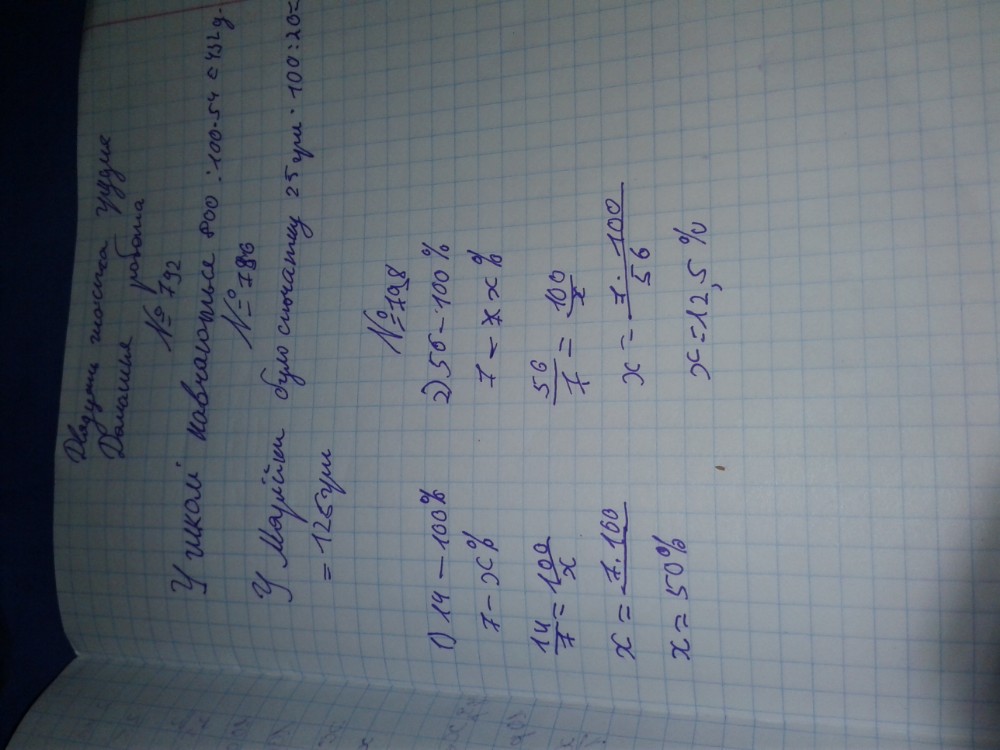 Двадцять шосте грудня
Домашня робота
№ 792
У школі навчаються 800 : 100 · 54 = 432 д.
№ 786
У Марійки було спочатку 25 грн · 100 : 20 =
= 125 грн
№ 798
1) 14 — 100%
7 — x%
14/7 = 100/x
x = 7 · 100
x = 50%
2) 56 — 100%
7 — x x%
56/7 = 100/x
x = 7 · 100/56
x = 12,5 %